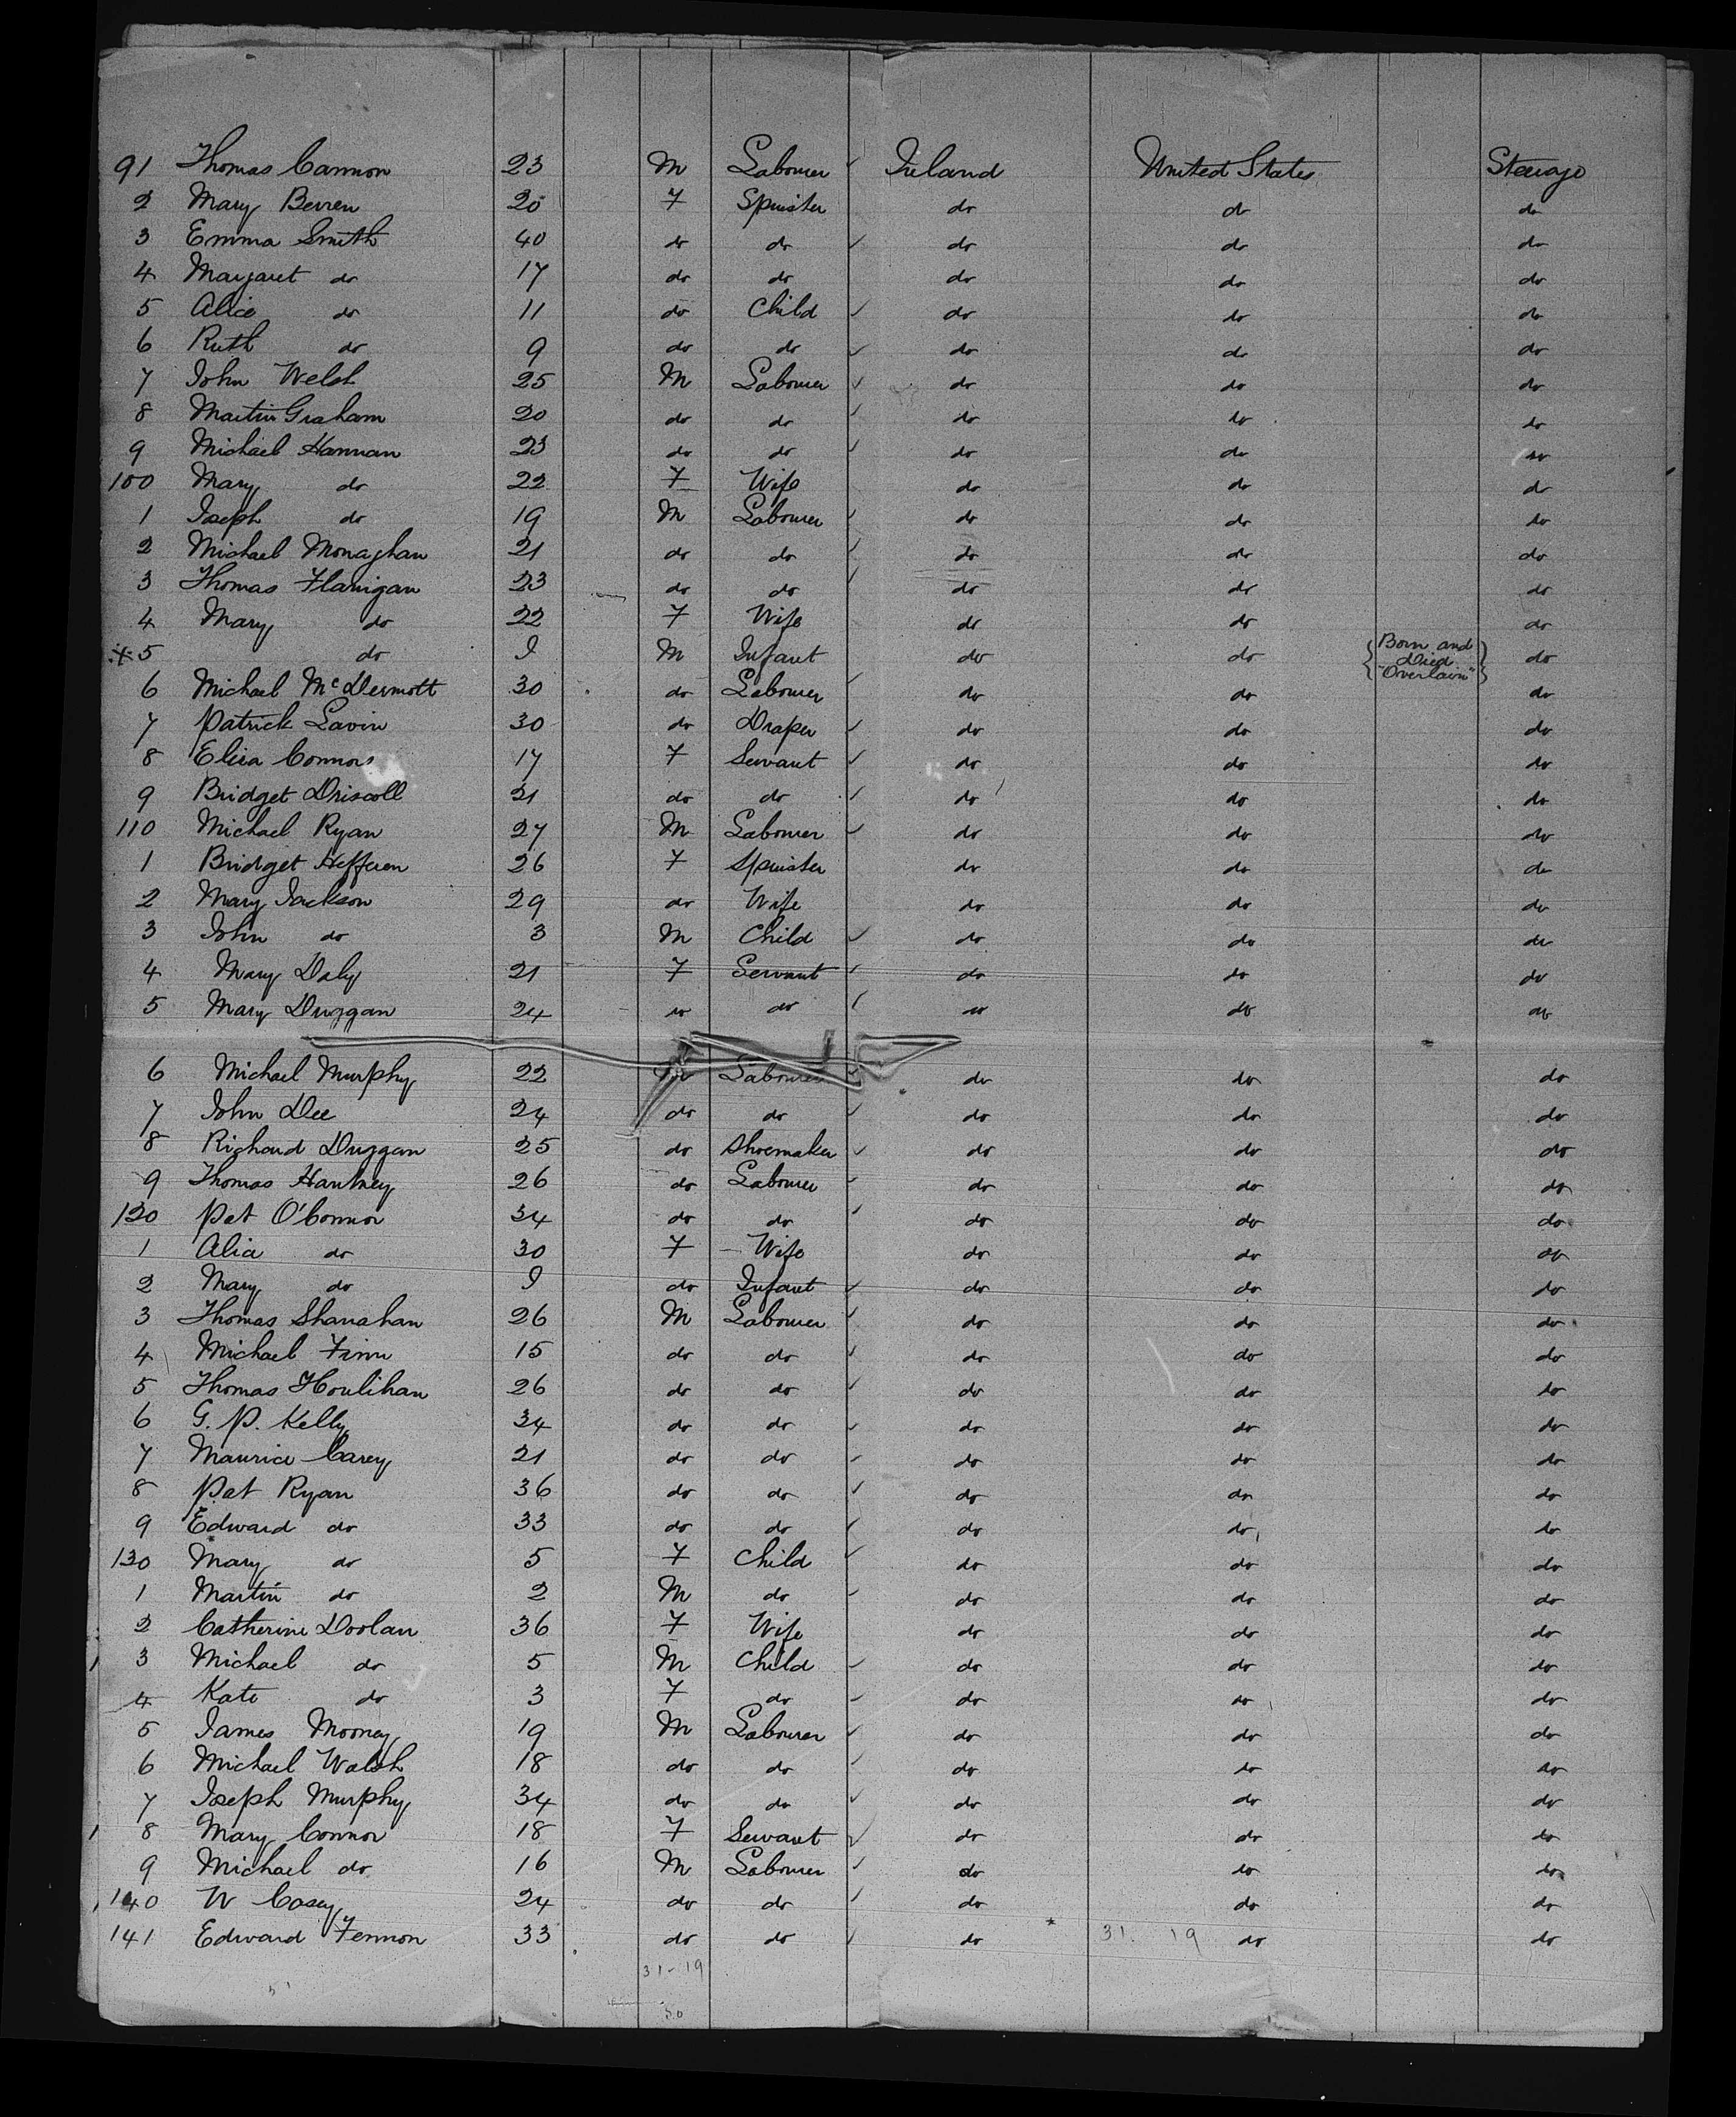 91 Thomas Cannon 23 M Labourer Ireland United States Steerage
2 Mary Berren 20 F Spinster do do do
3 Emma Smith 40 do do do do do
4 Margaret do 17 do do do do do
5 Alice do 11 do Child do do do
6 Ruth do 9 do do do do do
7 John Welsh 25 M Labourer do do do
8 Martin Graham 20 do do do do do
9 Michael Hannan 23 do do do do do
100 Mary do 22 F Wife do do do
1 Joseph do 19 M Labourer do do do
2 Michael Monaghan 21 do do do do do
3 Thomas Flanigan 23 do do do do do
4 Mary do 22 F Wife do do do
5 do I M Infant do do {Born and Died "Overlain"} do
6 Michael McDermott 30 do Labourer do do do
7 Patrick Lavin 30 do Draper do do do
8 Eliza Connors 17 F Servant do do do
9 Bridget Driscoll 21 do do do do do
110 Michael Ryan 27 M Labourer do do do
1 Bridget Heffren 26 F Spinster do do do
2 Mary Jackson 29 do Wife do do do
3 John do 3 M Child do do do
4 Mary Daly 21 F Servant do do do
5 Mary Duggan 24 do do do do do
6 Michael Murphy 22 Labourer do do do
7 John Dee 24 do do do do do
8 Richard Duggan 25 do Shoemaker do do do
9 Thomas 26 do Labourer do do do
120 Pat O'Connor 34 do do do do do
1 Alia do 30 F Wife do do do
2 Mary do I do Infant do do do
3 Thomas Shanahan 26 M Labourer do do do
4 Michael Finn 15 do do do do do
5 Thomas Houlihan 26 do do do do do
6 G. P. Kelly 34 do do do do do
7 Maurice Carey 21 do do do do do
8 Pat Ryan 36 do do do do do
9 Edward do 33 do do do do do
130 Mary do 5 F Child do do do
1 Martin do 2 M do do do do
2 Catherine Doolan 36 F Wife do do do
3 Michael do 5 M Child do do do
4 Kate do 3 F do do do do
5 James Mooney 19 M Labourer do do do
6 Michael Walsh 18 do do do do do
7 Joseph Murphy 34 do do do do do
8 Mary Connor 18 F Servant do do do
9 Michael do 16 M Labourer do do do
140 W Casey 24 do do do do do
141 Edward Fennon 33 do do do 31. 19 do do
31-19